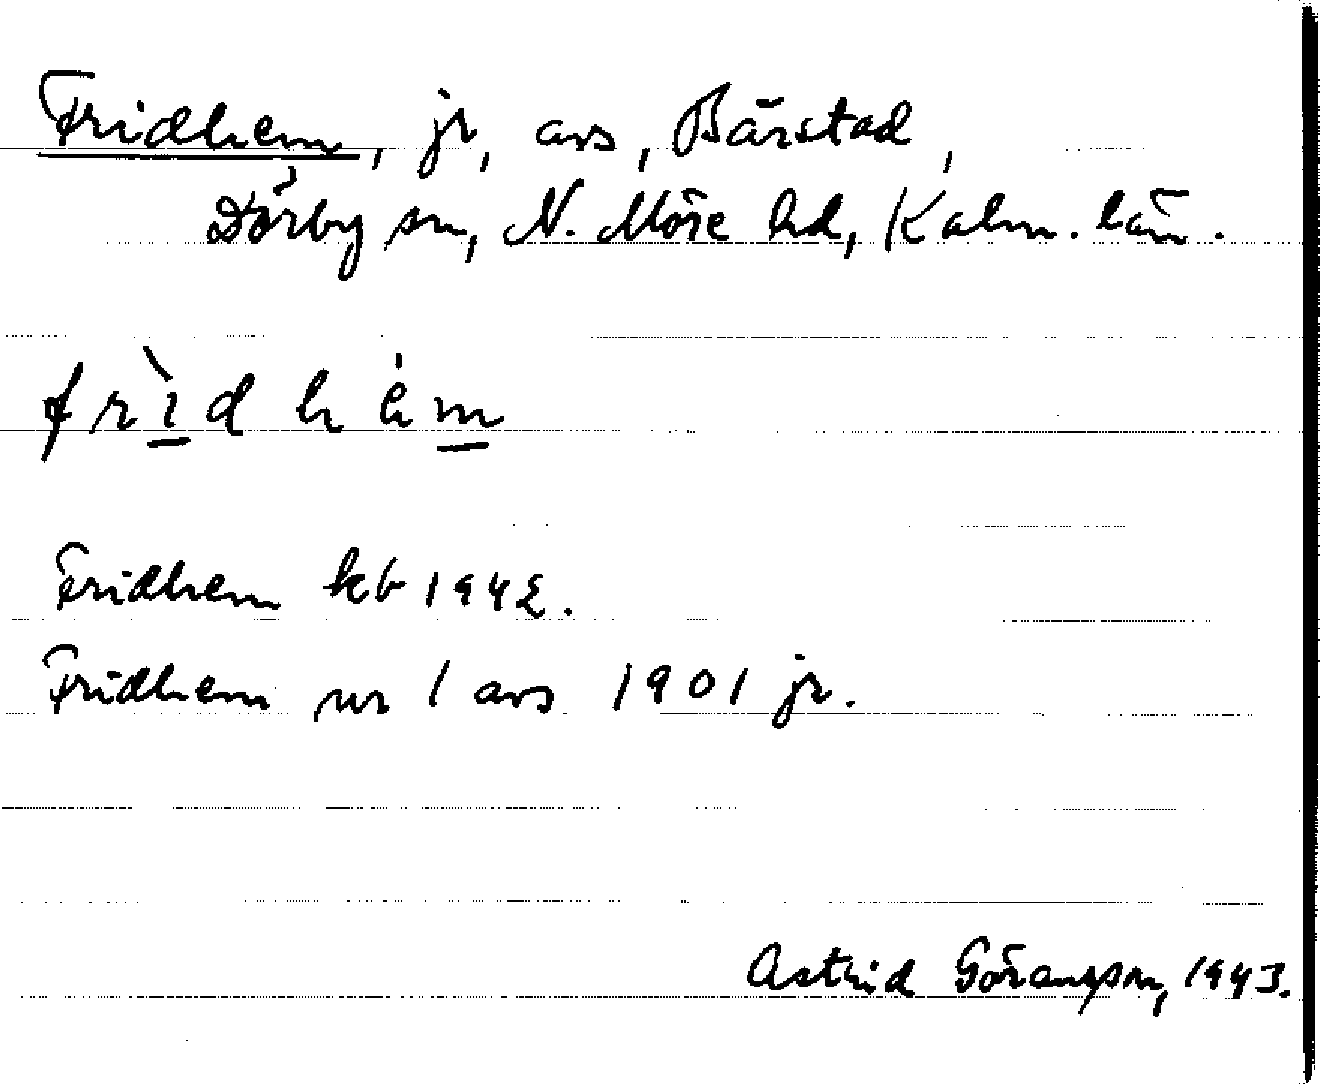 Fridhem, jr, avs, Bärstad,
Dörby sn, N. Möre hd, Kalm. län.
frìdhém
Fridhem kb 1942.
Fridhem nr 1 avs 1901 jr.
Astrid Göransson, 1943.